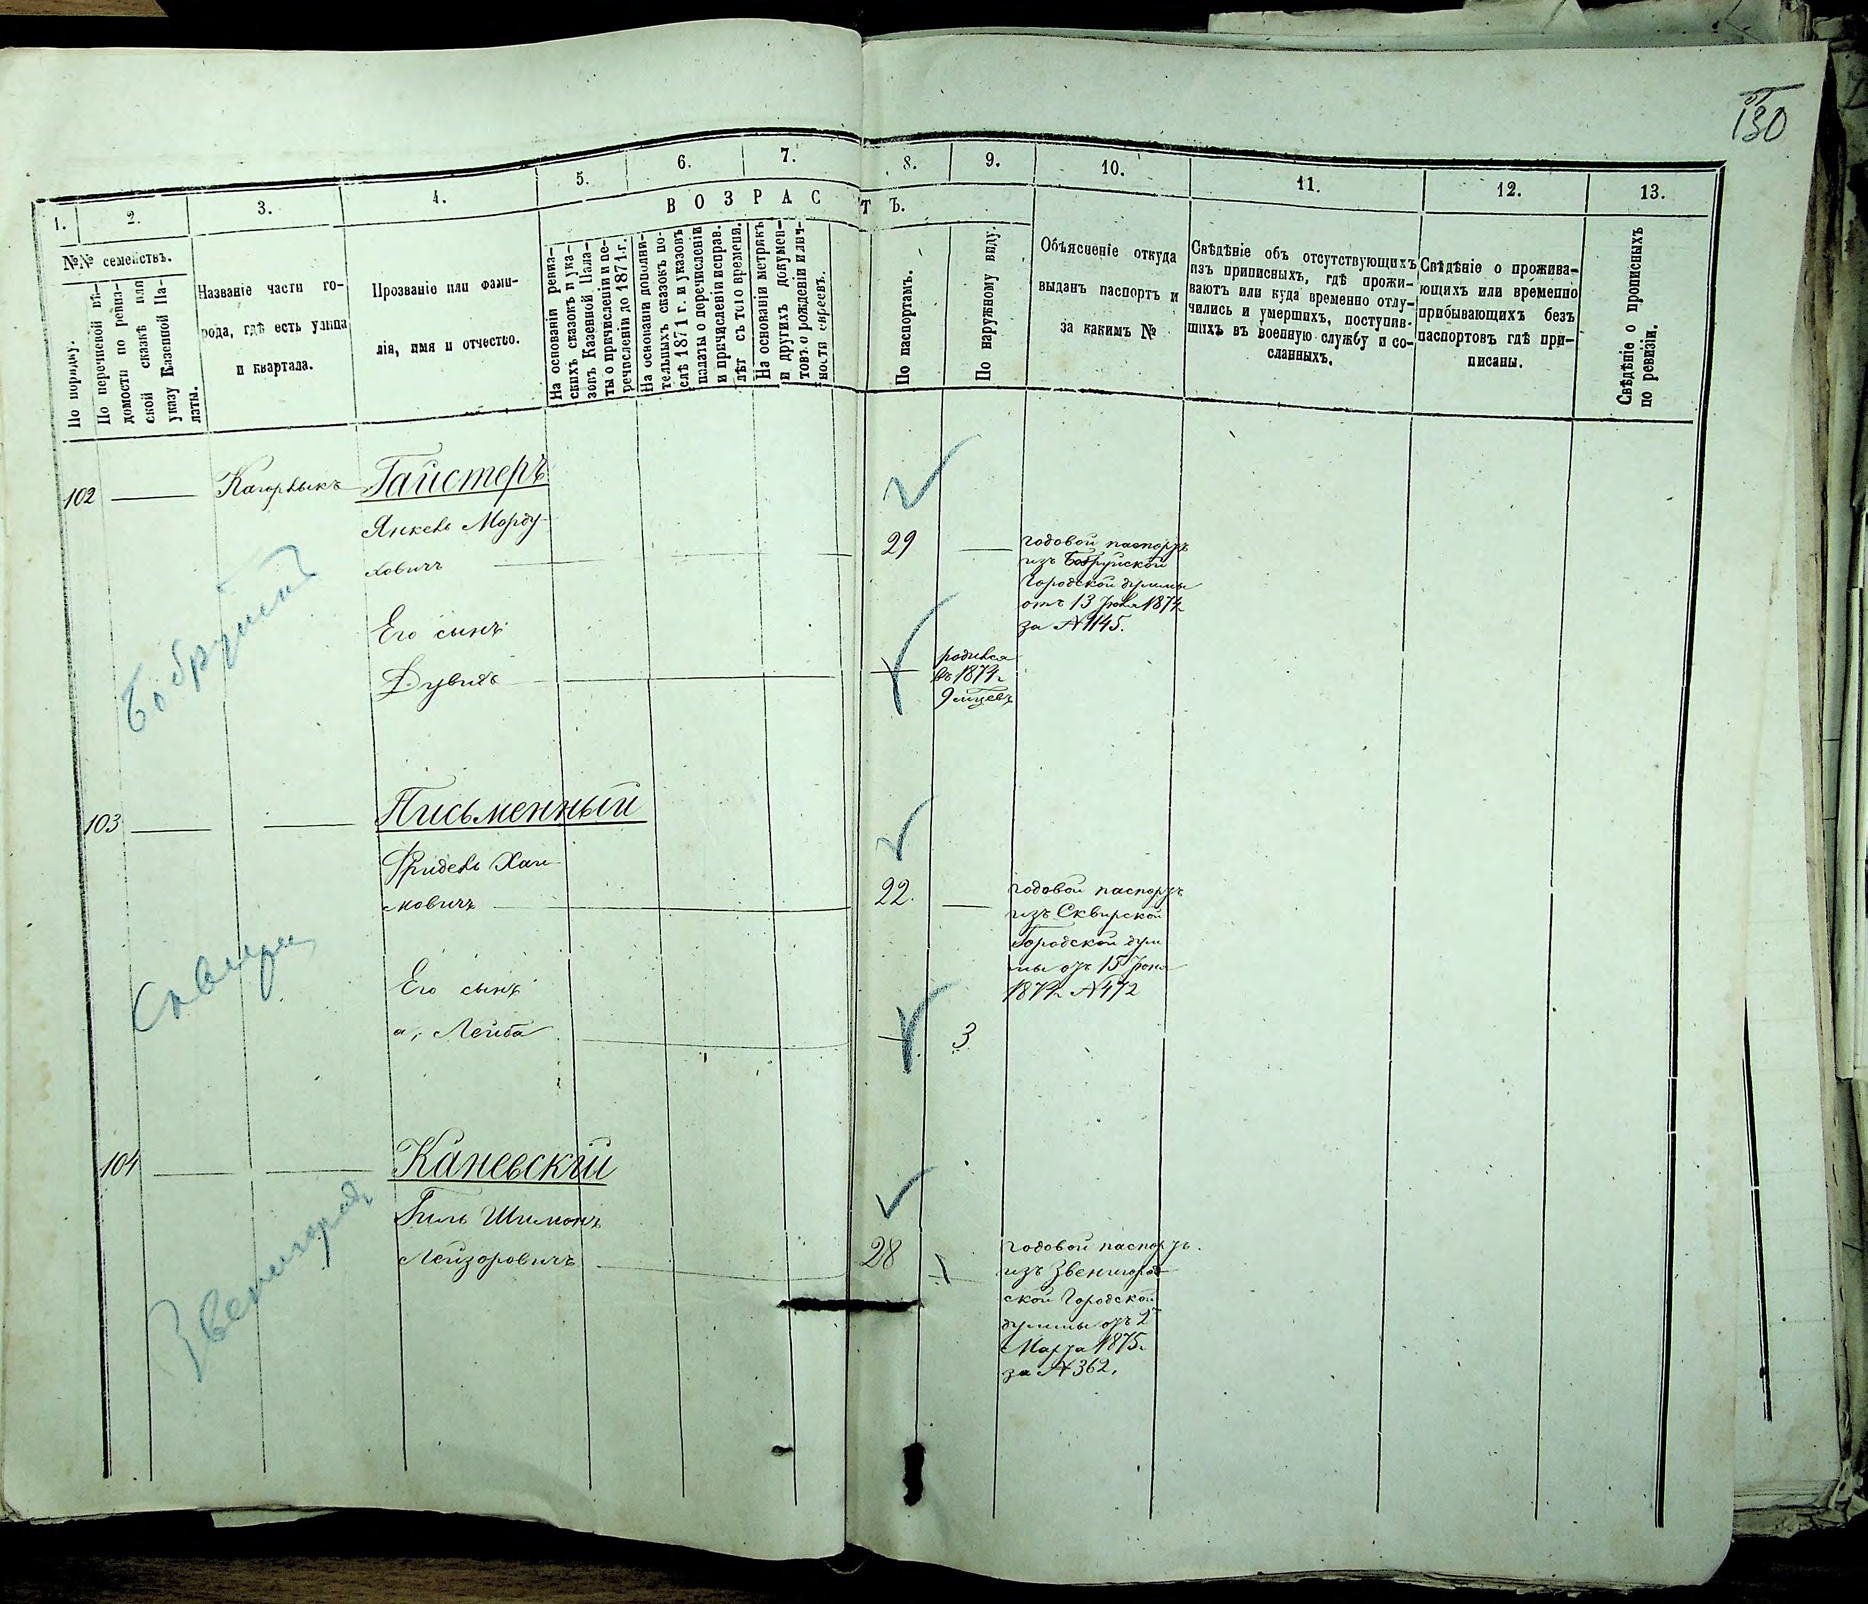 130
1.
2.
3.
4.
5.
6.
7.
8.
9.
10.
11.
12.
13.
ВОЗРАСТЪ.
№№ семействъ.
По порядку.
По переписной вѣ-
домости по ревиз-
ской сказкѣ или
указу Казенной Па-
латы.
Названіе части го-
рода, гдѣ есть улица
и квартала.
Прозваніе или фами-
лія, имя и отчество.
На основаніи ревиз-
скихъ сказокъ и ука-
зовъ Казенной Пала-
ты о причисленіи и пе-
речисленіи до 1871 г.
На основаніи дополни-
тельныхъ сказокъ по-
слѣ 1871 г. и указовъ
палаты о перечисленіи
и причисленіи исправ.
лѣт съ того времени.
На основаніи метрикъ
и другихъ докумен-
товъ о рожденіи и лич-
ности евреевъ.
По паспортамъ.
По наружному виду.
Объясненіе откуда
выданъ паспортъ и
за какимъ №
Свѣдѣніе объ отсутствующихъ
изъ приписныхъ, гдѣ прожи-
ваютъ или куда временно отлу-
чились и умершихъ, поступив-
шихъ въ военную службу и со-
сланныхъ.
Свѣдѣніе о прожива-
ющихъ или временно
прибывающихъ безъ
паспортовъ гдѣ при-
писаны.
Свѣдѣніе о прописныхъ
по ревизіи.
102
Кагорлыкъ
Гайстеръ
Янкель Морду-
ховичъ
29
годовой паспортъ
изъ Бобруйской
Городской думмы
отъ 13 1874
за №1145.
Его сынъ
Дувидъ
родился
въ 1874 г
9 мцевъ
103
Письменный
Фридель Хаи-
мовичъ
22.
годовой паспортъ
изъ Сквирской
Городской дум
мы отъ 15
1874 №472
Его сынъ
а, Лейба
3
104
Каневскій
Гиль Шимонъ
Лейзоровичъ
28
годовой паспортъ.
изъ Звенигород
ской Городской
думмы отъ 2
Марта 1875 г
за №362.